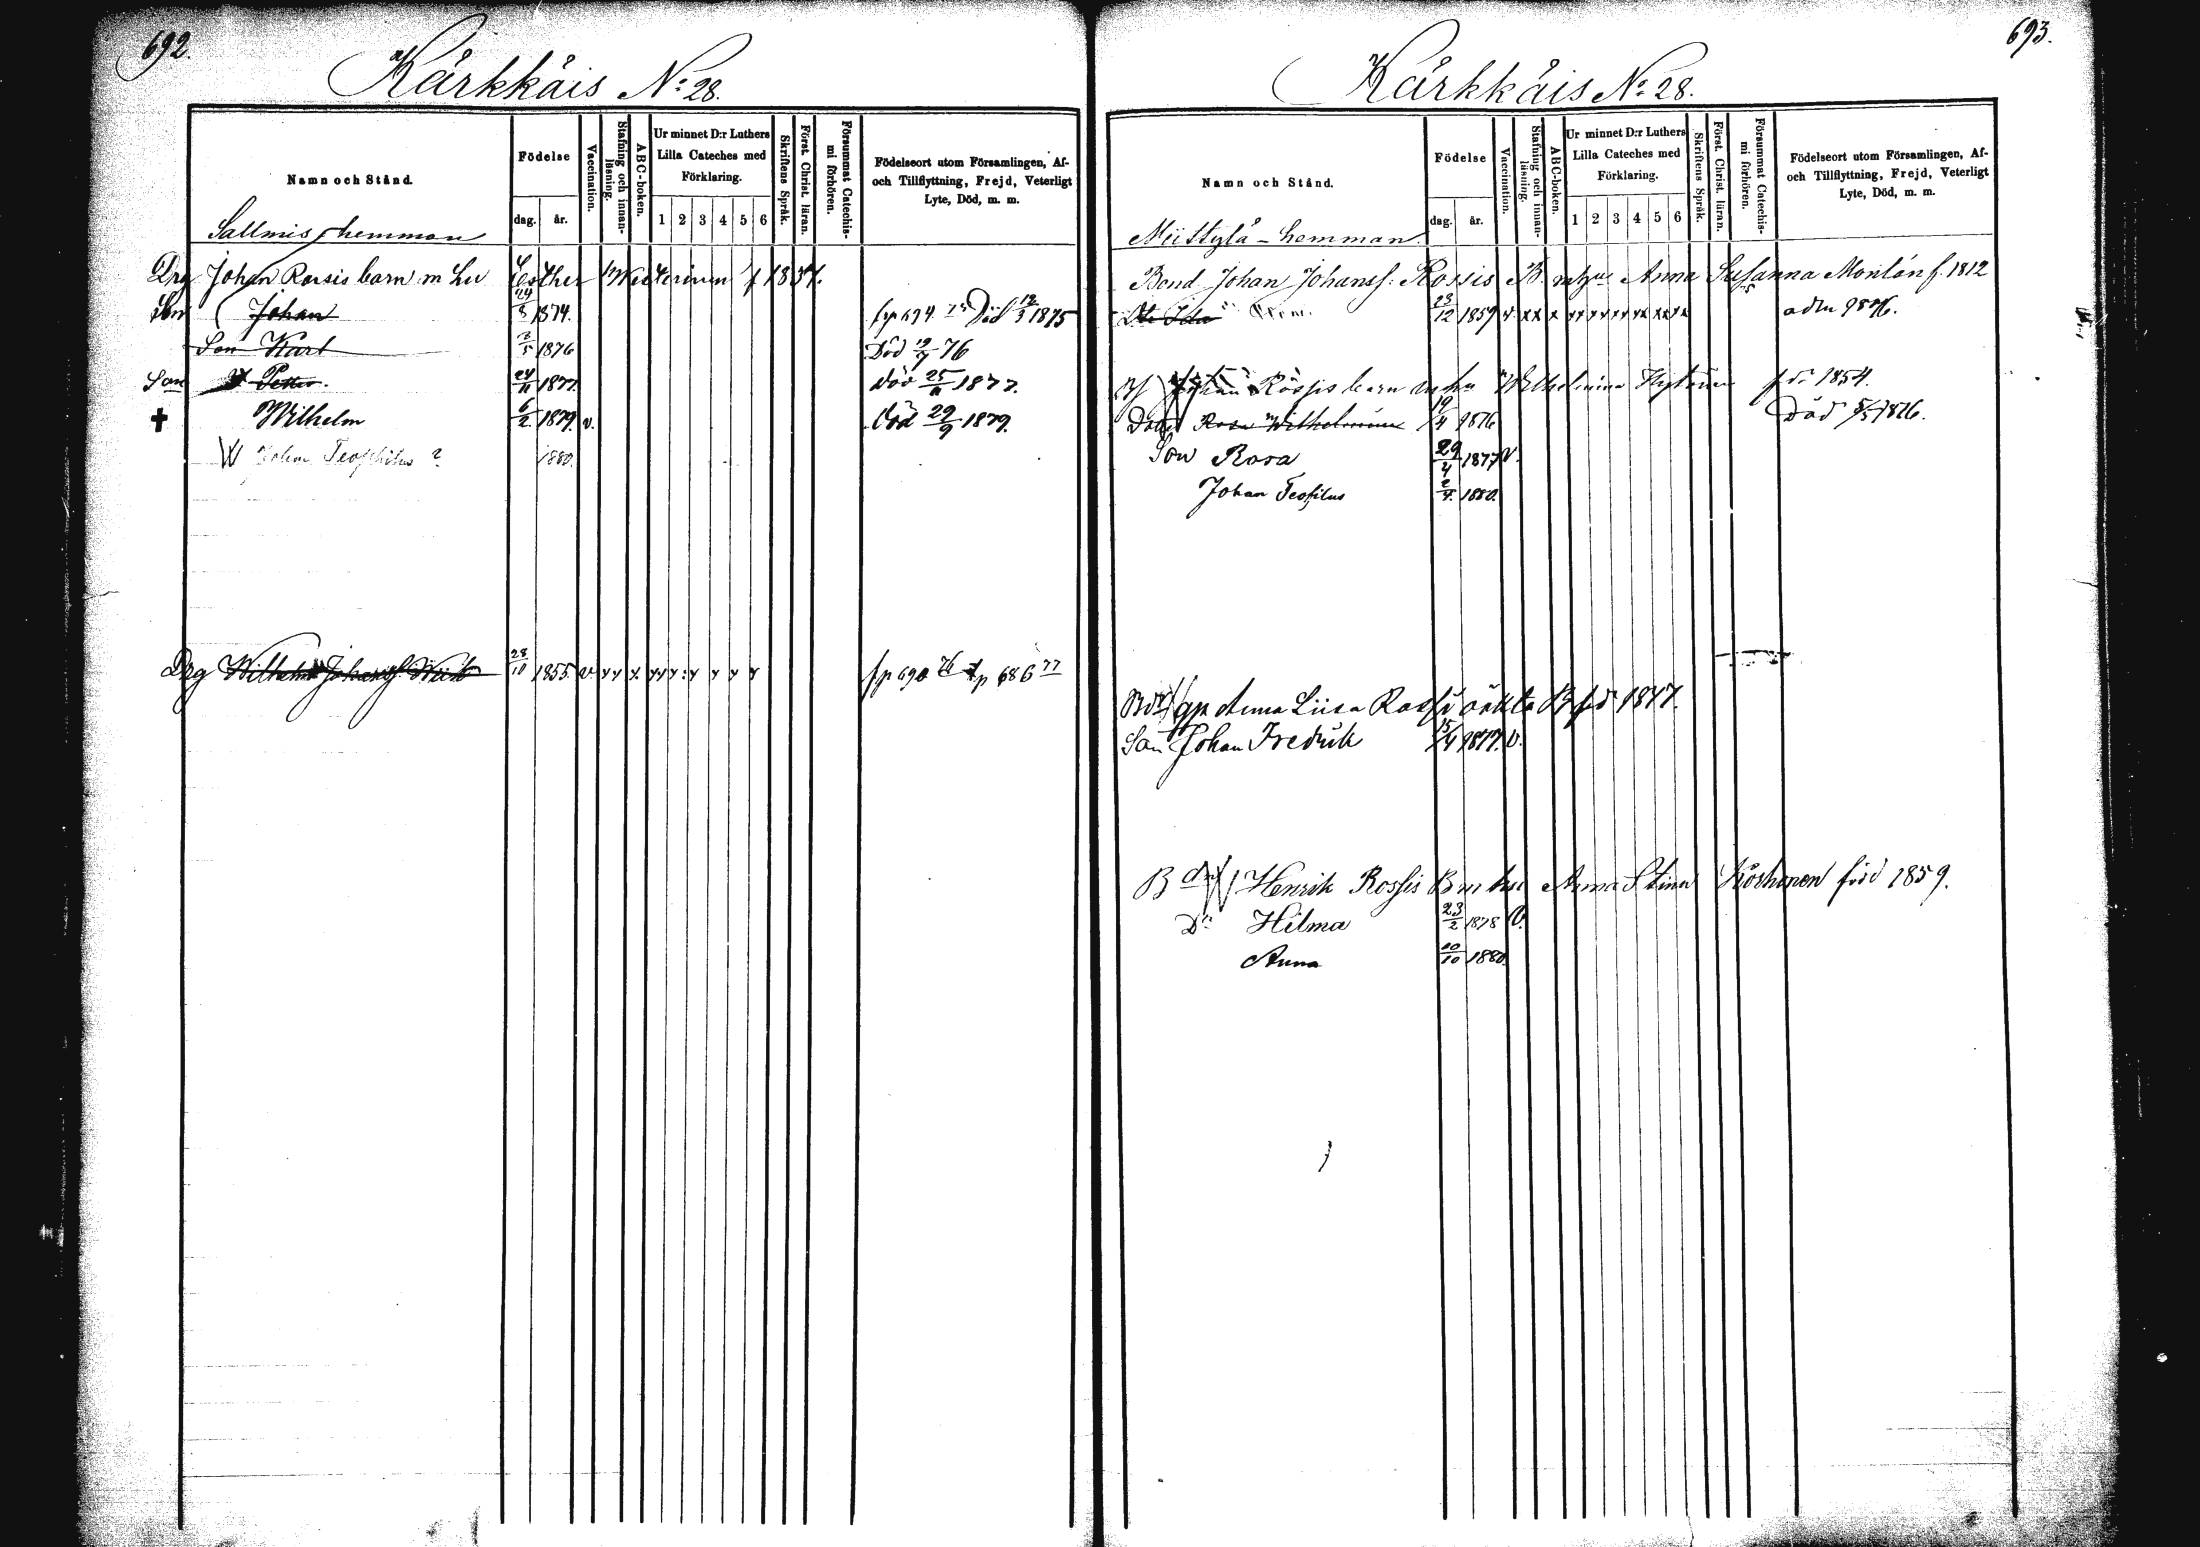 692.
Kärkkäis No 28.
Namn och Stånd.
Födelse
dag. år.
Vaccination.
Stafning och innanläsning.
ABC-boken.
Ur minnet D:r Luthers
Lilla Cateches med
Förklaring.
1 2 3 4 5 6
Skriftens Språk.
Först. Christ. läran.
Försummat Catechismi förhören.
Födelseort utom Församlingen, Af-
och Tillflyttning, Frejd, Veterligt
Lyte, Död, m. m.
Sallmis hemman
Drg Johan barn m hu Esther f 1837.
Son Johan 24/8 1874. frp 694 75 Död 12/3 1875
Son Karl 2/5 1876 Död 19/7 76
Son Petter. 24/11 1877. död 25/11 1877.
Wilhelm 6/2 1879. v. Död 29/9 1879.
Johan Teophilus ? 1880.
Drg Wilhelm Johanss. 28/10 1855. v fp 690 76 tp 686 77
693.
Kärkkäis No 28.
Namn och Stånd.
Födelse
dag. år.
Vaccination.
Stafning och innanläsning.
ABC-boken.
Ur minnet D:r Luthers
Lilla Cateches med
Förklaring.
1 2 3 4 5 6
Skriftens Språk.
Först. Christ. läran.
Försummat Catechismi förhören.
Födelseort utom Församlingen, Af-
och Tillflyttning, Frejd, Veterligt
Lyte, Död, m. m.
Miittylä - hemman.
Bond Johan Johanss: Rossis B. m hu Anna Susanna f. 1812
Dtr Ida 23/12 1859 v. xx x
Johan barn m hu Wilhelmina fd 1854.
Rosa Wilhelmina 19/4 1876 Död 5/5 1876.
Son Rosa 29/4 1877 v.
Johan Teofilus 2/4. 1880.
Anna Liisa fd 1847.
Son Johan Fredrik 15/4 1877. v.
B Henrik Rossis B m hu Anna Stina Korhonen född 1859.
Dr Hilma 23/2 1878 V.
Anna 10/10 1880.